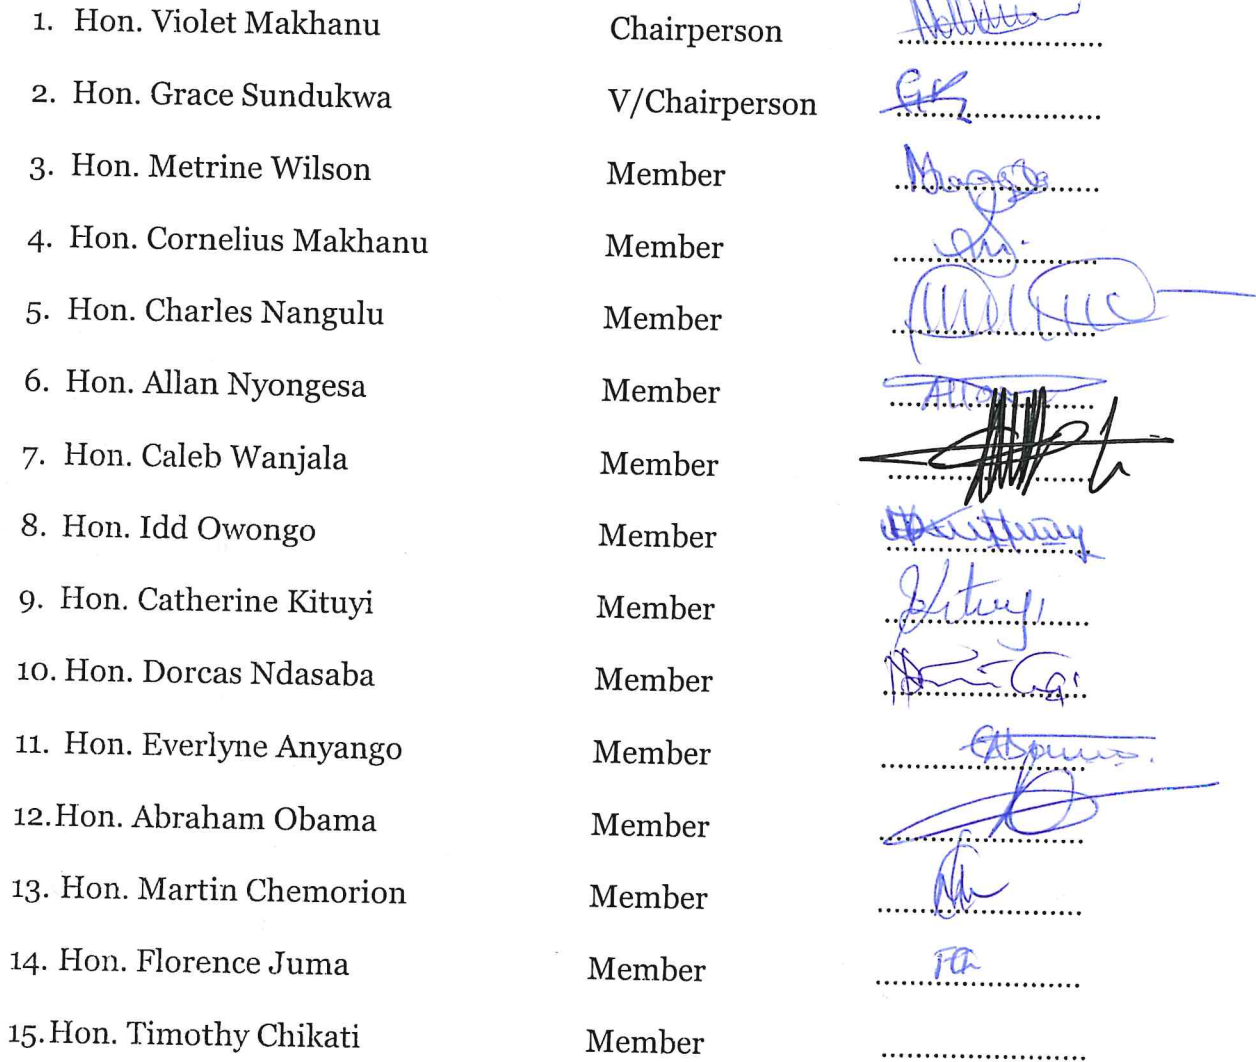 1. Hon. Violet Makhanu Chairperson ........................
2. Hon. Grace Sundukwa V/Chairperson ........................
3. Hon. Metrine Wilson Member ........................
4. Hon. Cornelius Makhanu Member ........................
5. Hon. Charles Nangulu Member ........................
6. Hon. Allan Nyongesa Member ........................
7. Hon. Caleb Wanjala Member ........................
8. Hon. Idd Owongo Member ........................
9. Hon. Catherine Kituyi Member ........................
10. Hon. Dorcas Ndasaba Member ........................
11. Hon. Everlyne Anyango Member ........................
12. Hon. Abraham Obama Member ........................
13. Hon. Martin Chemorion Member ........................
14. Hon. Florence Juma Member ........................
15. Hon. Timothy Chikati Member ........................